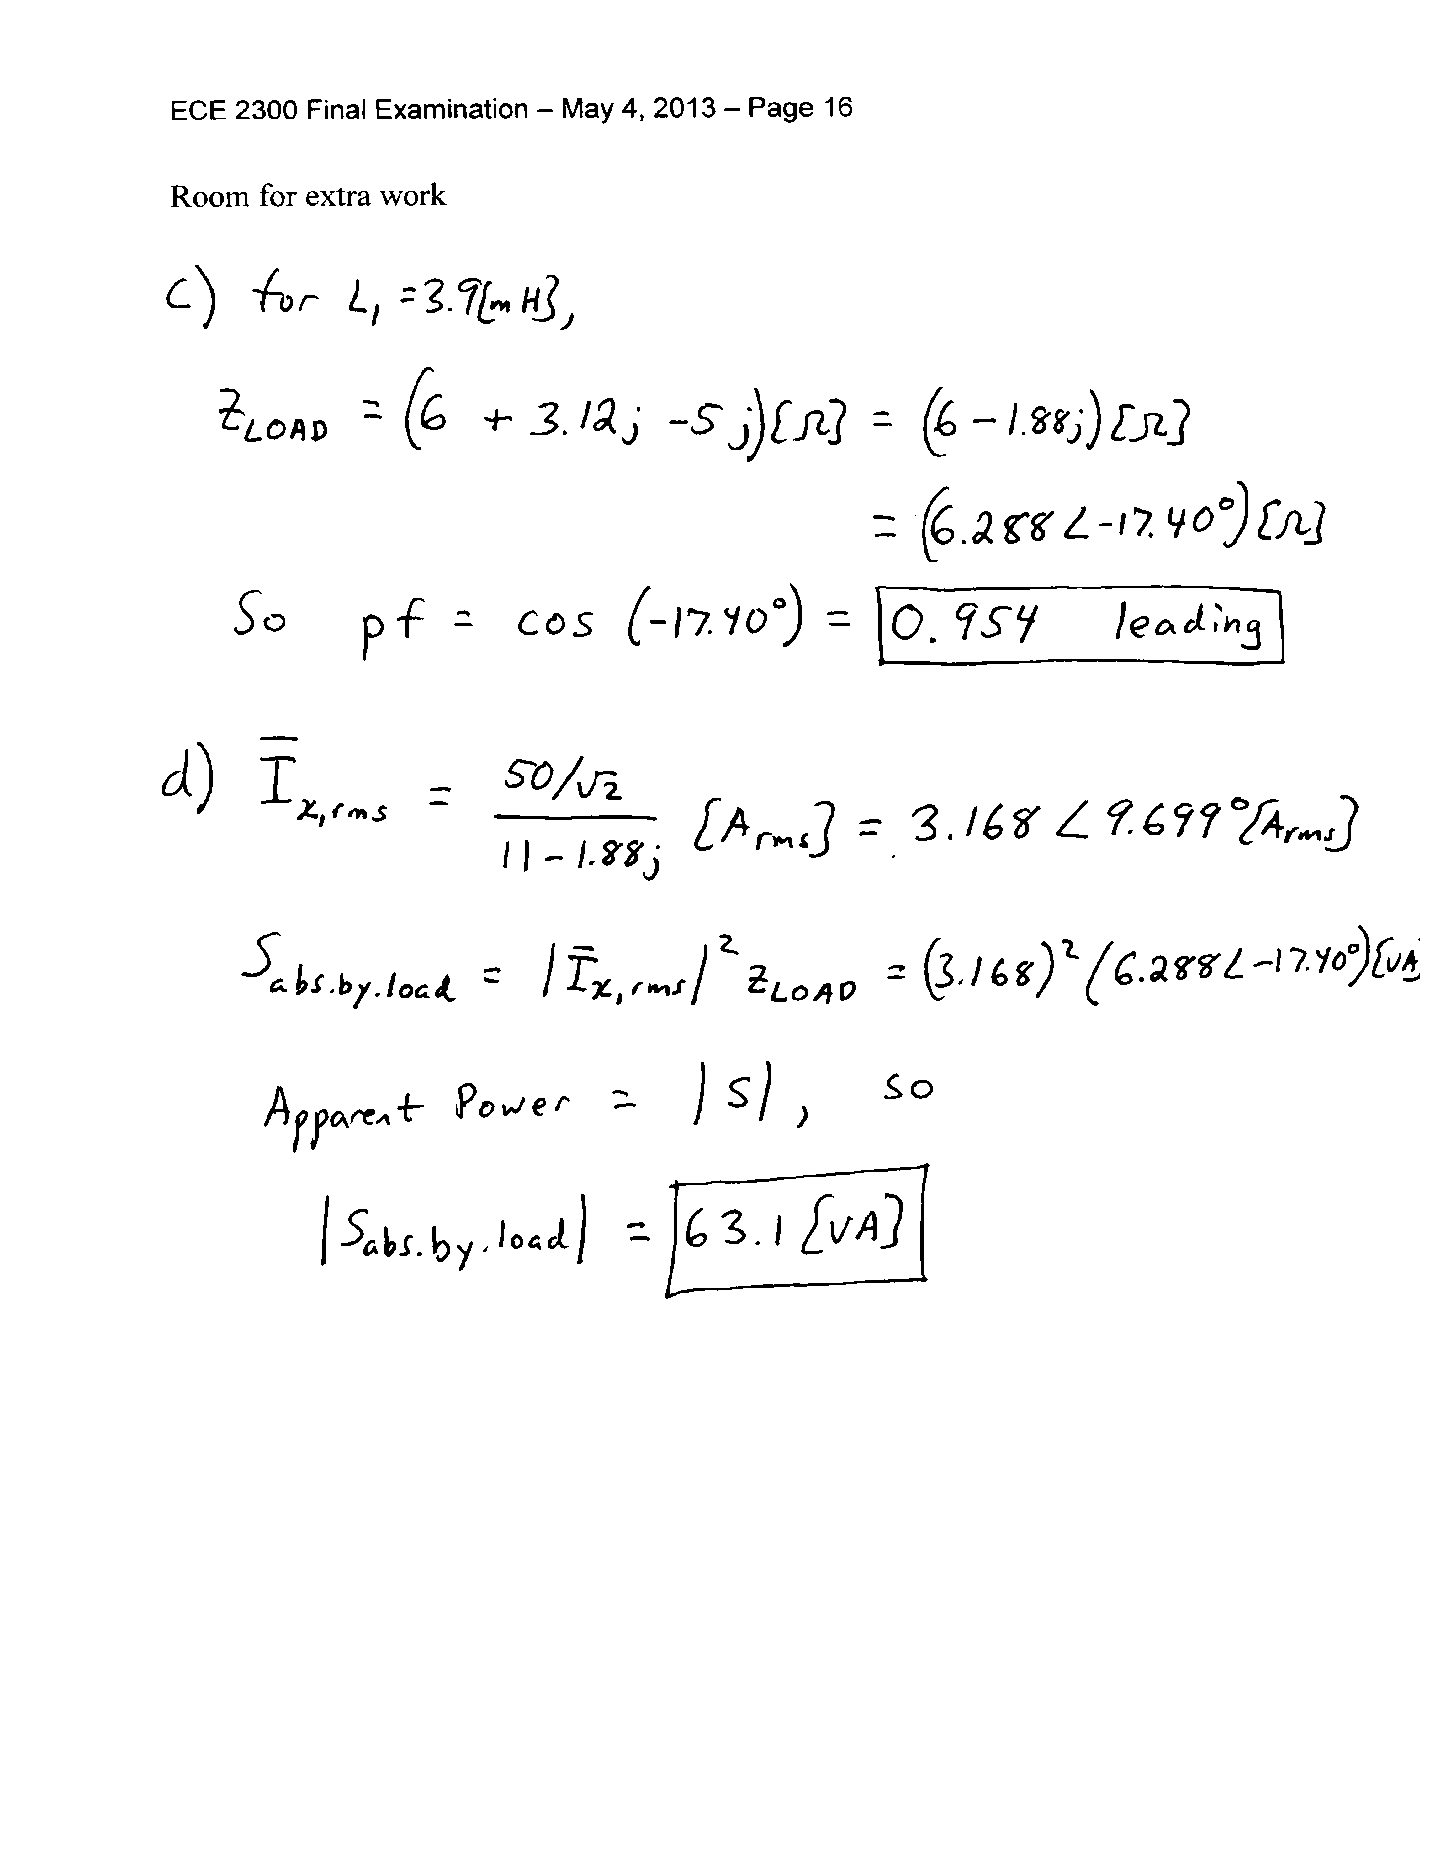 ECE 2300 Final Examination – May 4, 2013 – Page 16
Room for extra work
c) for L₁ = 3.9[mH],
Z_LOAD = (6 + 3.12j - 5j)[Ω] = (6 - 1.88j)[Ω]
= (6.288∠-17.40°)[Ω]
So pf = cos (-17.40°) = 0.954 leading
d) I̅_x,rms = (50/√2)/(11 - 1.88j) [Arms] = 3.168∠9.699°[Arms]
S_abs.by.load = |I̅_x,rms|² Z_LOAD = (3.168)² (6.288∠-17.40°)[VA
Apparent Power = |S|, so
|S_abs.by.load| = 63.1 [VA]